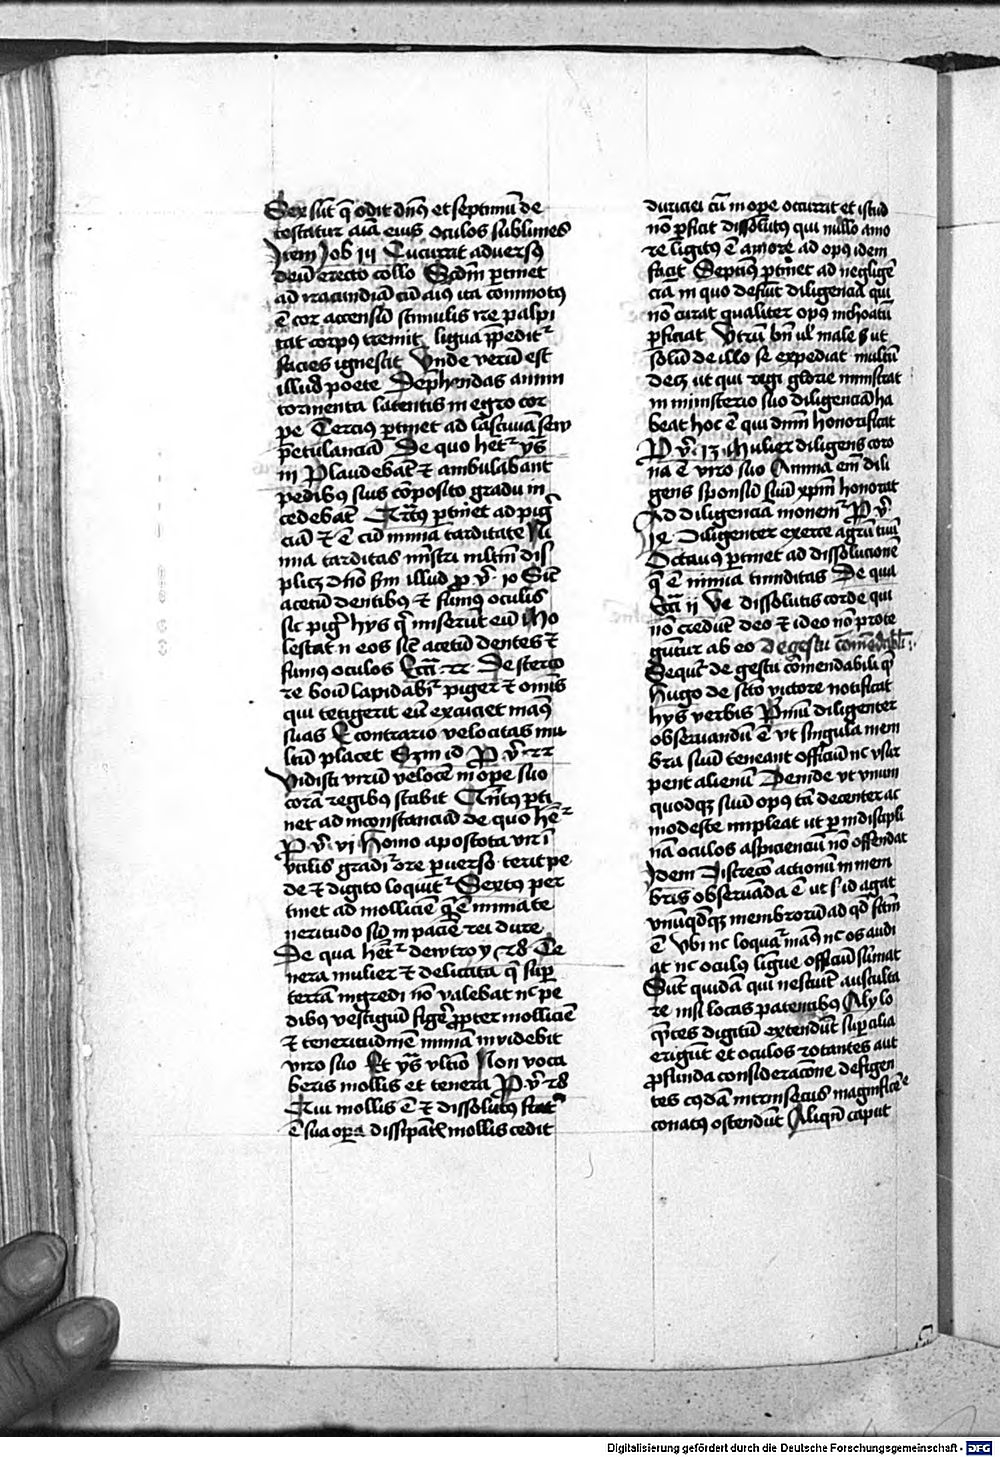 Sex sūt q̄ odit dn̄s et septimū de
testatur aīa eius oculos sublimes
Item Iob iii Cucurrit aduersꝰ
deū erecto collo Scđm ꝑtinet
ad iracundiā cū aīus ita commotꝰ
ē cor accensū stimulis ire palpi
tat corpus tremit ligua p̄peditr
facies ignescit Vnde verū est
illud poete Dephendas animi
tormenta latentis in egro cor
pe Tercius ꝑtinet ad lasciuiā seu
petulanciā De quo hetr ys
iii Plaudebāt et ambulabant
pedibꝰ suis cōposito gradu in
cedebāt Quartꝰ ꝑtinet ad pig
ciā et ē cū nimia tarditate Ni
mia tarditas mīstri mltm dis
plicꝫ dño scđm illud ꝓ v̄ 10 Sic
acetū dentibꝰ et fumꝰ oculis
sic pigr hys q̄ miserūt eū Mo
lestat n eos sic acetū dentes et
fumꝰ oculos Ecci 22 De sterco
re boū lapidabitr piger et omīs
qui tetigerit eū excuciet manꝰ
suas E contrario velocitas mu
ltū placet Scđm id Pv̄ 22
Vidisti virū velocē in ope suo
corā regibus stabit Quītus ꝑti
net ad inconstanciā de quo hetr
Pv̄ vi Homo apostota vir ī
vtilis graditr ore ꝑuerso terit pe
de et digito loquitr Sextus per
tinet ad molliciē q̄ ē nimia te
neritudo sū impaciē rei dure
De qua hetr dewtroy 28 Te
nera mulier et delicata q̄ suꝑ
terrā ingredi nō valebat nc pe
dibus vestigiū figere ꝓpter molliciē
et teneritudinē nimiā inuidebit
viro suo Et ys vltīo Non voca
beris mollis et tenera Pv̄ 28
Qui mollis ē et dissolutꝰ frat
ē sua oꝑa dissipātꝭ mollis cedit
duriciei cū in ope occurrit et istud
nō ꝑficit dissolutꝰ qui nullo amo
re ligatꝰ ē amore ad opꝰ idem
facit Septiꝰ ꝑtinet ad negligē
ciā in quo defiūt diligencia qui
nō curat qualiter opꝰ inchoatū
ꝑficiat Vtrū bn̄ ul male sꝫ ut
solū de illo se expediat multū
decꝫ ut qui regi glorie ministrat
in ministerio suo diligenciā ha
beat hoc ē qui dnm honorificat
Pv̄ 12 Mulier diligens coro
na ē viro suo Anima em dili
gens sponsū suū xpm honorat
Ad diligencia monemr Pv̄
Diligenter exerce agrū tuū
Octauꝰ ꝑtinet ad dissolucionē
q̄ ē nimia timiditas De qua
Ecci ii Ve dissolutis corde qui
nō credūt deo et ideo nō prote
gūtur ab eo De gestu cōmēdabili
Sequitr de gestu cōmendabili q̄
Hugo de scto victore notificat
hys verbis Primū diligenter
obseruandū ē vt singula mem
bra suū teneant officiū nc vsur
pent alienū Deinde vt vnum
quodqꝫ suū opus tā decenter ac
modeste impleat ut ꝑ indiscipli
nā oculos aspicienciū nō offendat
Idem Discreco actionū in mem
bris obseruāda ē ut sꝫ id agat
vnūqdqꝫ membrorū ad qd fctm
ē Vbi nc loquatr manꝰ nc os audi
at nc oculus ligue officiū sumat
Sūt quidā qui nesciūt ausculta
re nisi locis patentibus Aly lo
q̄ntes digitū extendūt suꝑcilia
erigūt et oculos rotantes aut
ꝓfunda consideracōne defigen
tes cꝰdā intrinsecus magnificēe
conatꝰ ostendūt Aliqn̄ caput
Digitalisierung gefördert durch die Deutsche Forschungsgemeinschaft - DFG